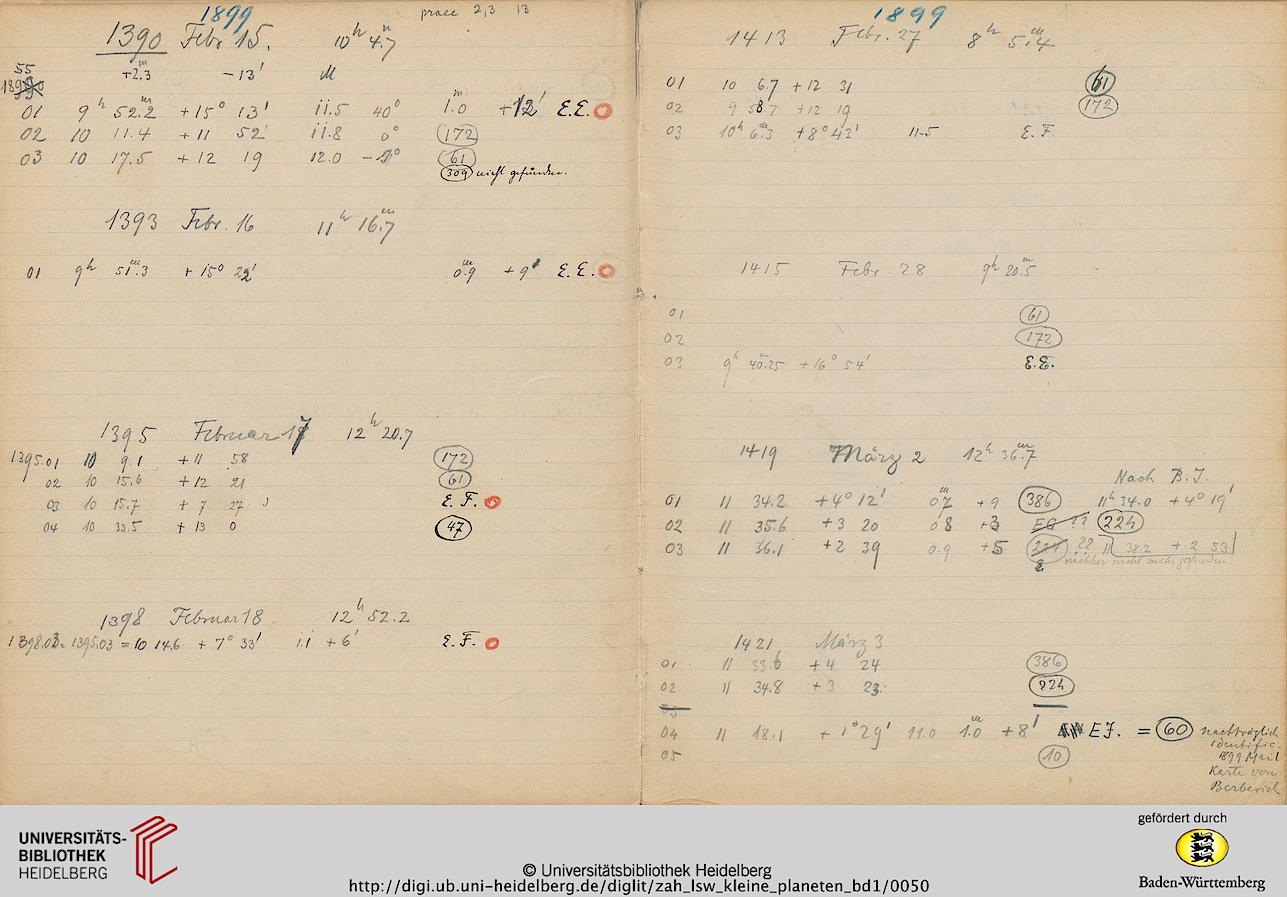 1899
praec 2,3 13
1390 Febr 15. 10h 4.7m
+2.3m -13' M
55
01 9h 52.2m +15° 13' 11.5 40° 1.0m +12' E.E.
02 10 11.4 +11 52' 11.8 0° 172
03 10 17.5 +12 19 12.0 61
309 nicht gefunden.
1393 Febr. 16 11h 16.7m
01 9h 51.3m +15° 22' 0.9m +9' E.E.
1395 Februar 17 12h 20.7
1395.01 10 9.1 +11 58 172
02 10 15.6 +12 21 61
03 10 15.7 +7 27 E.F.
04 10 33.5 +13 0 47
1398 Februar 18. 12h 52.2
1398.03 = 1395.03 = 10 14.6 +7° 33' 1.1 +6' E.F.
1899
1413 Febr. 27 8h 5.4m
01 10 6.7 +12 31 61
02 9 58.7 +12 19 172
03 10h 6.3m +8° 43' 11.5 E.F.
1415 Febr. 28 9h 20.5m
01 61
02 172
03 9h 40.25m +16° 54' E.E.
1419 März 2 12h 36.7m
Nach B.J.
01 11 34.2 +4° 12' 0.7m +9 386 11h 34.0 +4° 19'
02 11 35.6 +3 20 0.8 +3 EG ?? 224
03 11 36.1 +2 39 0.9 +5 224 ?? 11 38.2 +2 53
nachher nicht mehr gefunden
1421 März 3
01 11 33.6 +4 24 386
02 11 34.8 +3 23. 224
03
04 11 18.1 +1° 29' 11.0 1.0m +8' EJ. = 60 nachträglich
identific.
1899 Mai 1
Karte von
Berberich
05 10
UNIVERSITÄTS-
BIBLIOTHEK
HEIDELBERG
© Universitätsbibliothek Heidelberg
http://digi.ub.uni-heidelberg.de/diglit/zah_lsw_kleine_planeten_bd1/0050
gefördert durch
Baden-Württemberg